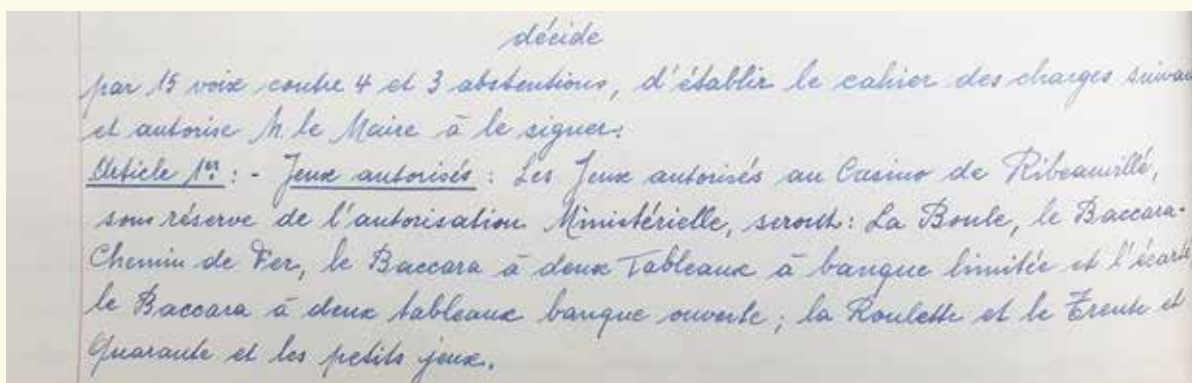 décide
par 15 voix contre 4 et 3 abstentions, d'établir le cahier des charges suivan
et autorise M. le Maire à le signer.
Article 1er : - Jeux autorisés : Les Jeux autorisés au Casino de Ribeauvillé,
sous réserve de l'autorisation Ministérielle, seront : La Boule, le Baccara-
Chemin de Fer, le Baccara à deux Tableaux à banque limitée et l'écarté,
le Baccara à deux tableaux banque ouverte ; la Roulette et le Trente et
Quarante et les petits jeux.